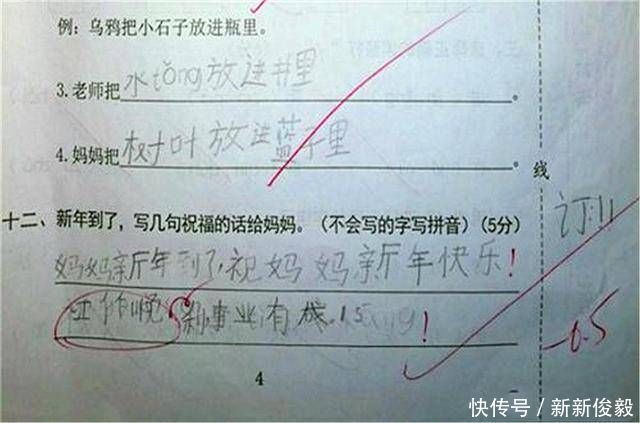 例：乌鸦把小石子放进瓶里。
3.老师把水tǒng放进井里。
4.妈妈把树叶放进蓝子里。
线
十二、新年到了，写几句祝福的话给妈妈。（不会写的字写拼音）（5分）
订
妈妈新年到了，祝妈妈新年快乐！
事业有成！
-0.5
4
快传号／新新俊毅